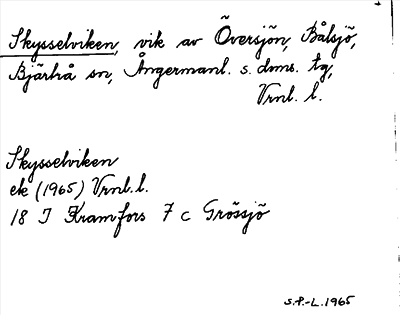 Skysselviken, vik av Översjön, Bålsjö,
Bjärtrå sn, Ångermanl. s. doms. tg,
Vrnl. l.
Skysselviken
ek (1965) Vrnl. l.
18 I Kramfors 7 c Grössjö
S.P.-L. 1965